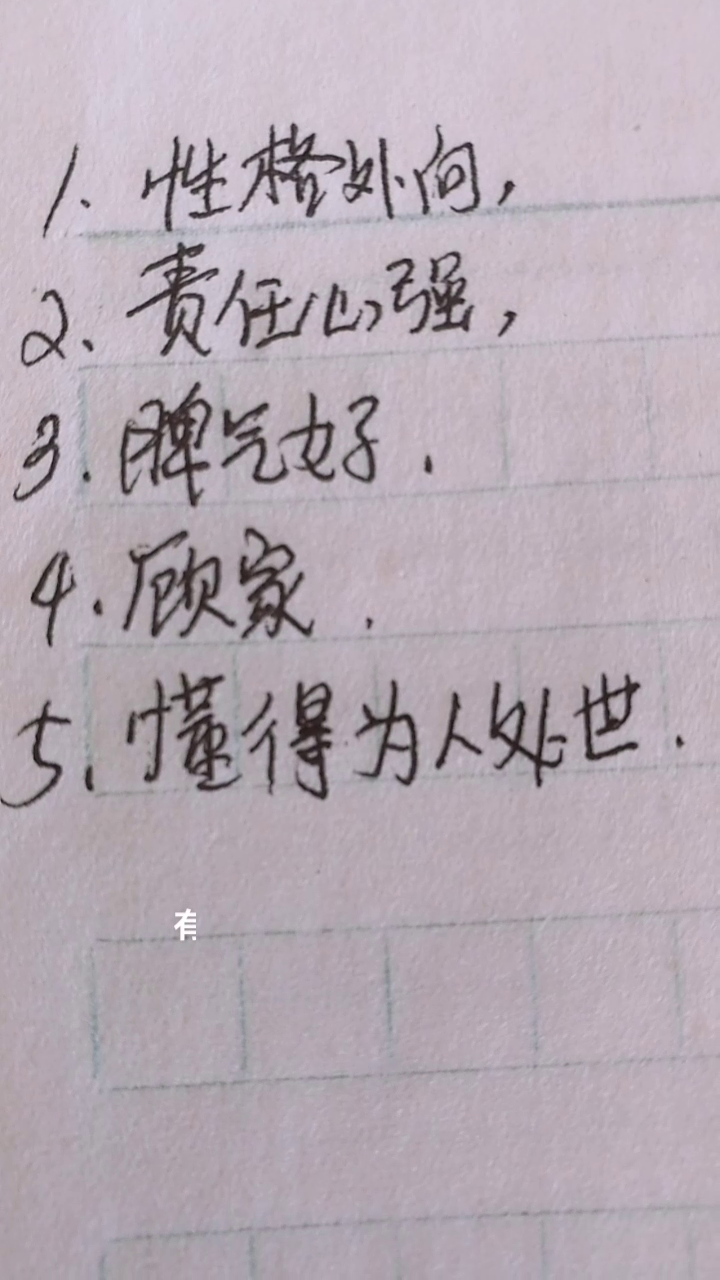 1. 性格外向,
2. 责任心强,
3. 脾气好.
4. 顾家.
5. 懂得为人处世.
有